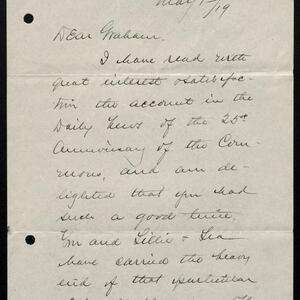 May 1/19
Dear Graham.
I have read with
great interest & satisfac-
tion the account in the
Daily News of the 25th
Anniversary of the Com-
mons, and am de-
lighted that you had
such a good time.
You and Lillie & Lea
have carried the heavy
end of that particular